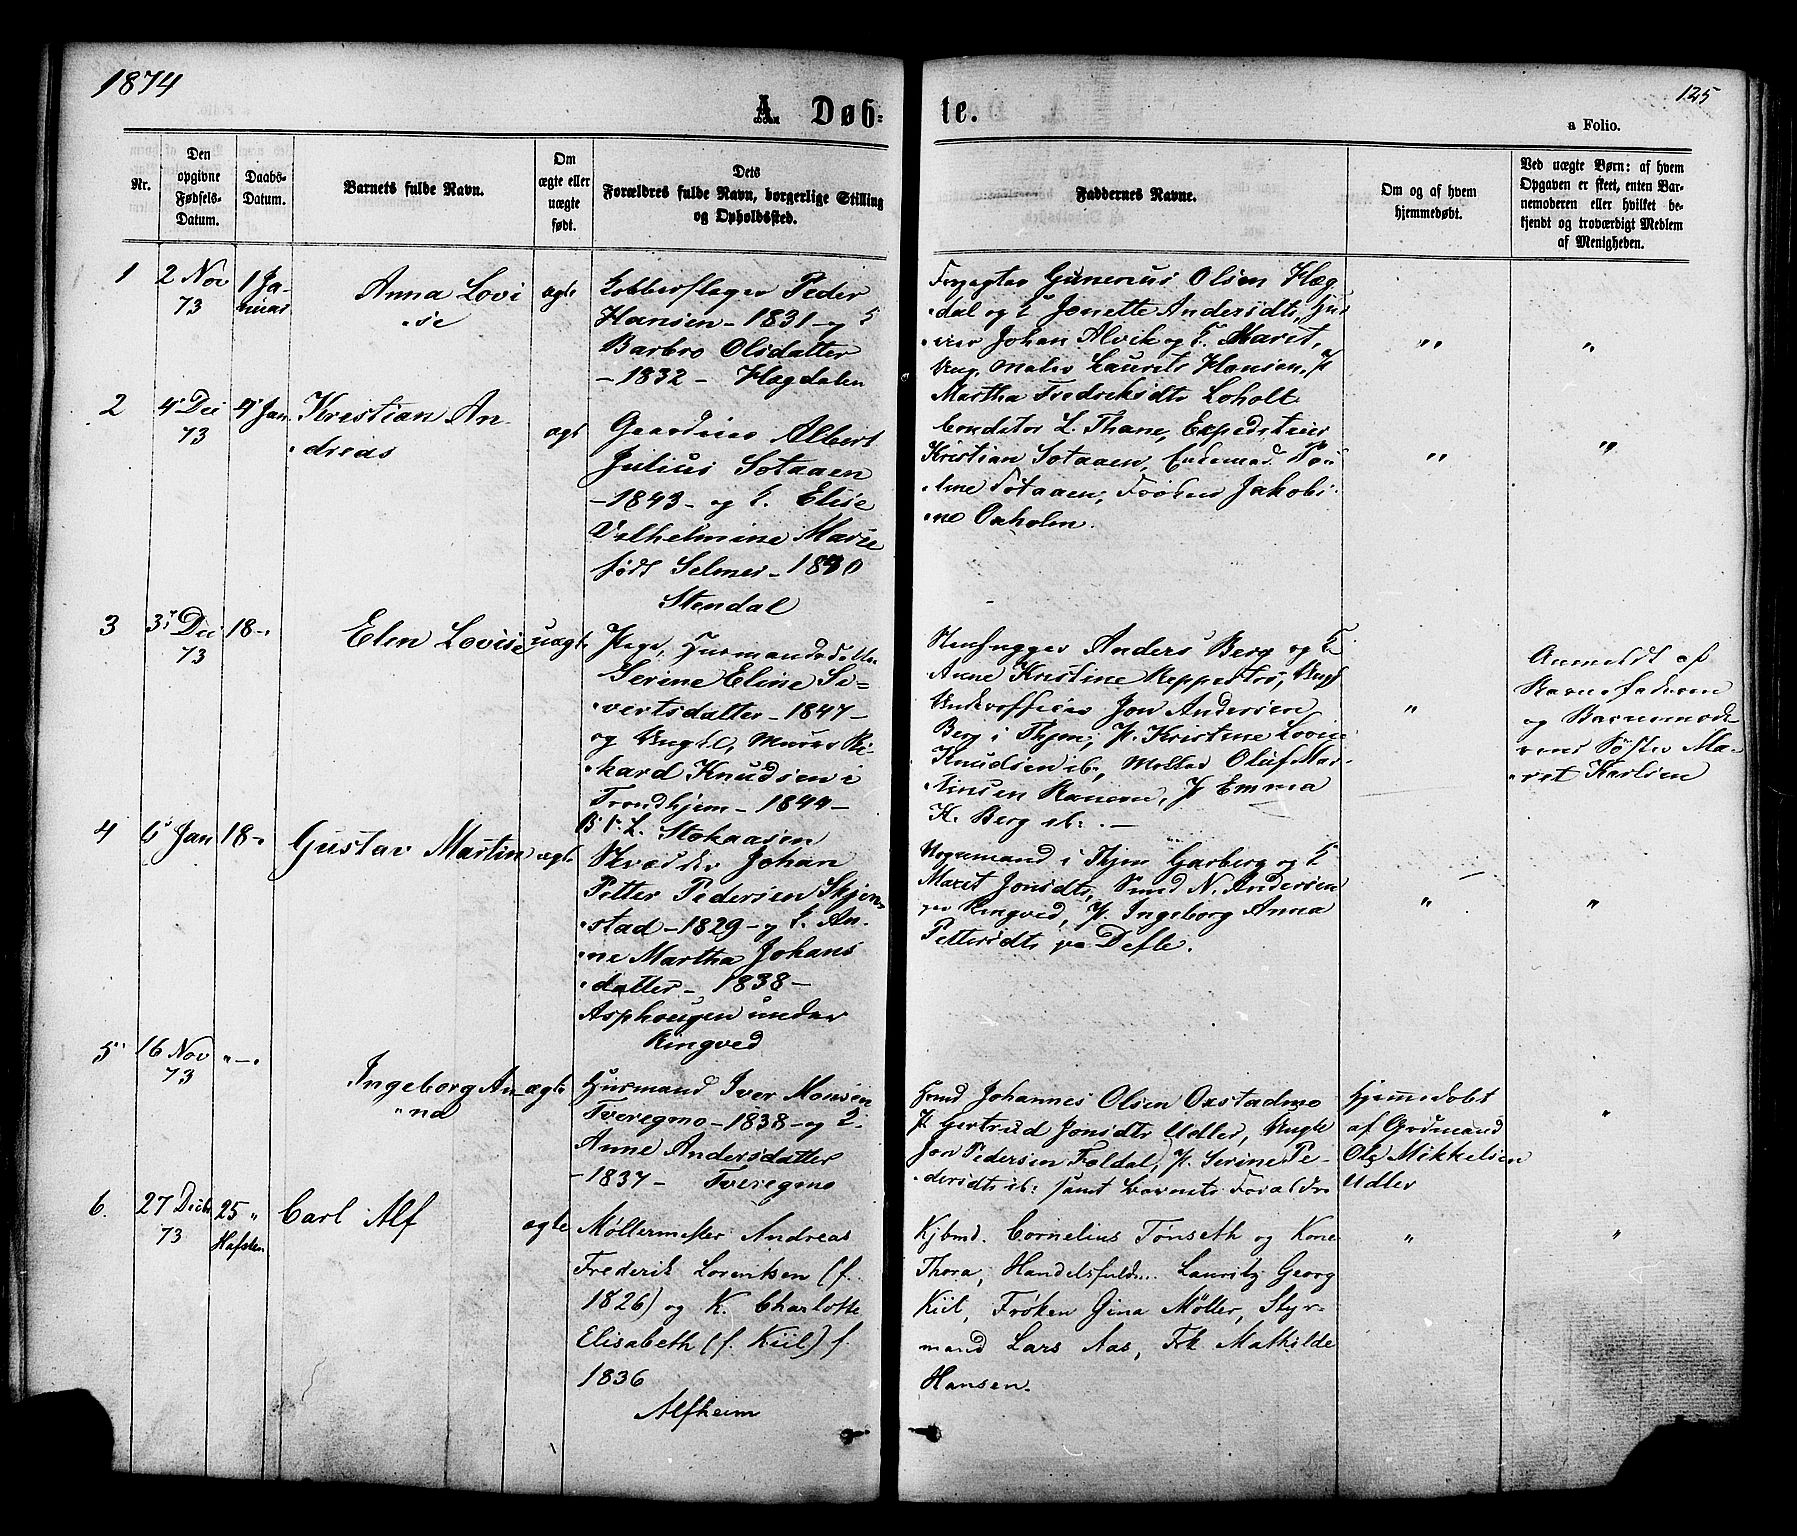 1874
125
A. Døb-
te.
a Folio.
Nr.
Den
opgivne
Fødsels-
Datum.
Daabs-
Datum.
Barnets fulde Navn.
Om
ægte eller
uægte
født.
Dets
Forældres fulde Navn, borgerlige Stilling
og Opholdssted.
Faddernes Navne.
Om og af hvem
hjemmedøbt.
Ved uægte Børn: af hvem
Opgaven er skeet, enten Bar-
nemoderen eller hvilket be-
kjendt og troværdigt Medlem
af Menigheden.
1
2 Nov
73
1 Ja-
nuar
Anna Lovi
se
ægte
Kobberslager Peder
Hansen - 1831 - og K
Barbro Olsdatter
- 1832 - Hægdalen
Forpagter Gunerius Olsen Hæg
dal og K Jonette Andersdtr,
Johan Alvik og K. Marit,
Ung. Maler Laurits Hansen, P
Martha Fredriksdtr Loholt
" "
"
2
4 Dec
73
4 Jan
Kristian An
dreas
ægt
Albert
Julius Sotaaen
- 1843 - og K. Elise
Vilhelmine Marie
født Selmer - 1840
Stendal
L. Thane,
Kristian Sotaaen,
Sotaaen, Frøken Jakobi
ne Oxholm.
" "
"
3
3 Dec
73
18 -
Elen Lovise
uægte
Pige, Husmandsdatter
Serine Eline Si-
vertsdatter - 1847 -
og Ungkl, Murer Ri
kard Knudsen i
Trondhjem - 1844 -
Stokaasen
Stenhugger Anders Berg og K
Anne Kristine Reppestrø, Ungk
Underofficer Jon Andersen
Berg i Thjem, P. Kristine Lovise
Knudsen ib., Møller Oluf Mar-
tinsen Ranem, P Emma
K. Berg ib: . -
"
Anmeldt af
Barnefaderen
og Barnemode
rens Søster Ma-
rit Karlsen
4
6 Jan
18 -
Gustav Martin
ægte
Skrædder Johan
Petter Pedersen Skjen
stad - 1829 - og K. An
ne Martha Johans
datter - 1838 -
Asphougen under
Ringved
i Thjem Garberg og K
Marit Jonsdtr, N. Andersen
Ringved, P. Ingeborg Anna
Pettersdtr paa Defle.
"
"
5
16 Nov
73
" - "
Ingeborg An
na
ægte
Husmand Iver Monsen
Tveregmo - 1838 - og K.
Anne Andersdatter
- 1837 - Tveregmo
Johannes Olsen Oxstadmo
P Gertrud Jonsdtr Udler, Ungkl
Jon Pedersen Foldal, P. Serine Pe-
dersdtr ib: samt Barnets Forældre
Hjemmedøbt
af Grdmand
Ole Mikkelsen
Udler
"
6.
27 Decbr
73
25 "
Hafsten
Carl Alf
ægte
Møllermester Andreas
Frederik Lorentzen (f.
1826) og K. Charlotte
Elisabeth (f. Kiil) f.
1836
Alfheim
Kjbmd. Cornelius Tønseth og Kone
Thora, Handelsfuldm. Lauritz Georg
Kiil, Frøken Gina Møller, Styr-
mand Lars Aas, Frk Mathilde
Hansen.
"
"